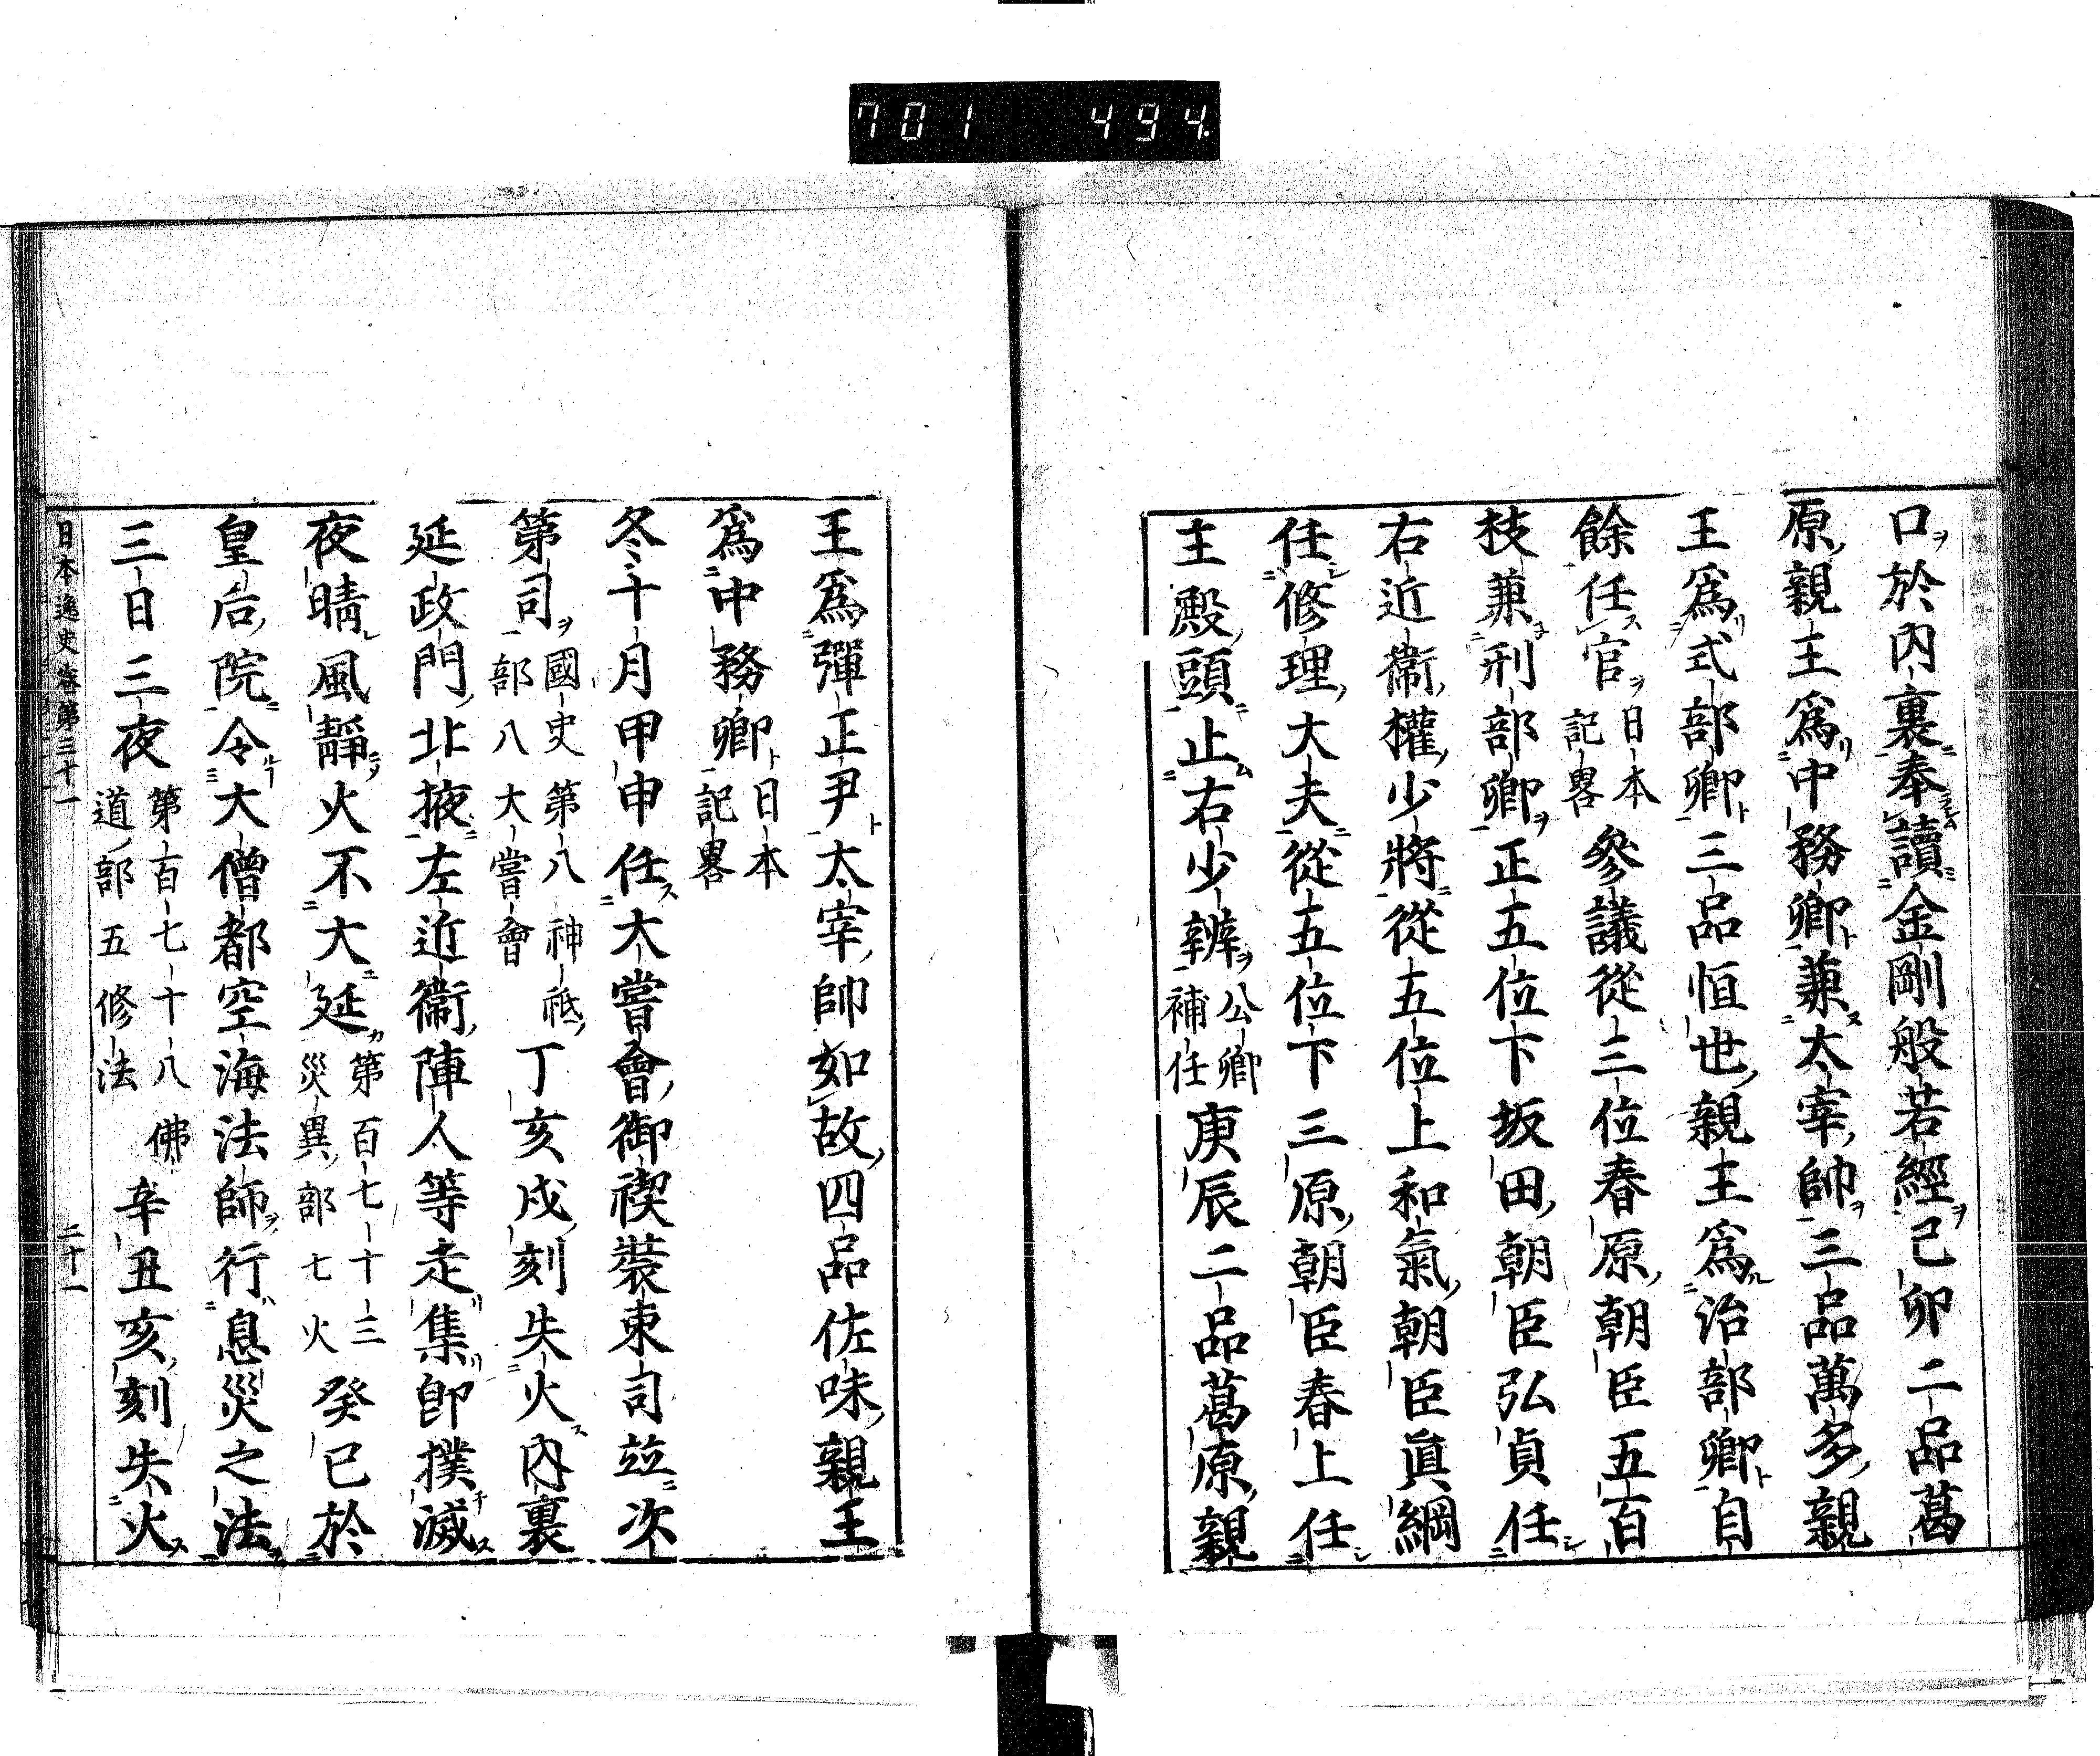 701 494
口於內裏奉讀金剛般若經己卯二品葛
原親王爲中務卿兼太宰帥三品萬多親
王爲式部卿三品恒世親王爲治部卿自
餘任官日本記畧參議從三位春原朝臣五百
枝兼刑部卿正五位下坂田朝臣弘貞任
右近衞權少將從五位上和氣朝臣眞綱
任修理大夫從五位下三原朝臣春上任
主殿頭止右少辨公卿補任庚辰二品葛原親
王爲彈正尹太宰帥如故四品佐味親王
爲中務卿日本記畧
冬十月甲申任大嘗會御禊裝束司竝次
第司國史第八神祗一部八大嘗會丁亥戌刻失火內裏
延政門北掖左近衞陣人等走集即撲滅
夜晴風靜火不大延第百七十三災異部七火癸已於
皇后院令大僧都空海法師行息災之法
三日三夜第百七十八佛道部五修法辛丑亥刻失火
日本逸史卷第三十一 二十一